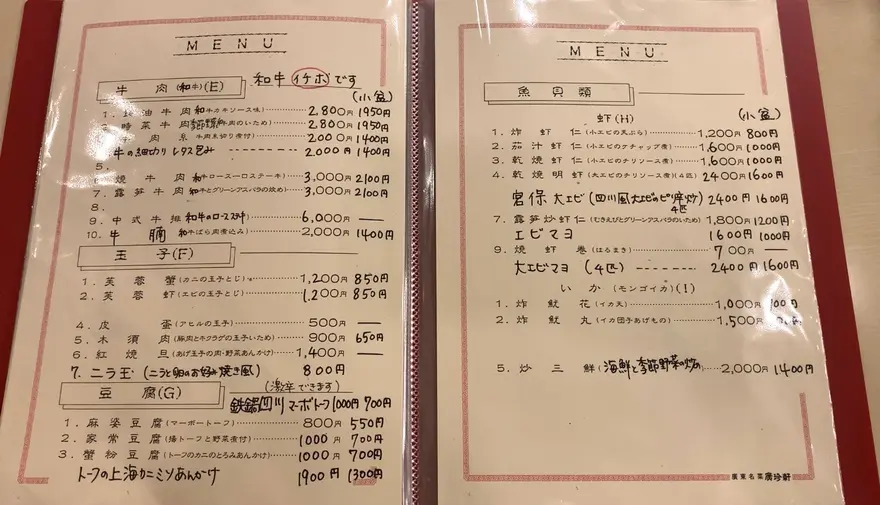 MENU
牛肉(和牛)(E) 和牛イチボです
(小盆)
1. 蚝油牛肉 和牛カキソース味 2,800円 1950円
2. 時菜牛肉 季節野菜和牛肉のいため 2,800円 1950円
牛肉糸 牛肉糸切り煮付 2000円 1400円
牛の細切りレタス包み 2000円 1400円
5.
6. 燒牛肉 和牛ロース一口ステーキ 3,000円 2100円
7. 露笋牛肉 和牛とグリーンアスパラの炒め 3,000円 2100円
8.
9. 中式牛排 和牛のロースステーキ 6,000円 ―
10. 牛腩 和牛ばら肉煮込み 2,000円 1400円
玉子(F)
1. 芙蓉蟹(カニの玉子とじ) 1,200円 850円
2. 芙蓉虾(エビの玉子とじ) 1,200円 850円
4. 皮蛋(アヒルの玉子) 500円 ―
5. 木須肉(豚肉とキクラゲの玉子いため) 900円 650円
6. 紅燒旦(あげ玉子の肉・野菜あんかけ) 1,400円 ―
7. ニラ玉(ニラと卵のお好み焼き風) 800円
豆腐(G) (激辛できます)
鉄鍋四川マーボトーフ 1000円 700円
1. 麻婆豆腐(マーボートーフ) 800円 550円
2. 家常豆腐(揚トーフと野菜煮付) 1000円 700円
3. 蟹粉豆腐(トーフのカニのとろみあんかけ) 1000円 700円
トーフの上海カニミソあんかけ 1900円 1300円
MENU
魚貝類
虾(H) (小盆)
1. 炸虾仁(小エビの天ぷら) 1,200円 800円
2. 茄汁虾仁(小エビのケチャップ煮) 1,600円 1000円
3. 乾燒虾仁(小エビのチリソース煮) 1,600円 1000円
4. 乾燒明虾(大エビのチリソース煮)(4匹) 2400円 1600円
宮保大エビ(四川風大エビのピリ辛炒) 4匹 2400円 1600円
7. 露笋炒虾仁(むきえびとグリーンアスパラのいため) 1,800円 1200円
エビマヨ 1600円 1000円
9. 燒虾巻(はるまき) 700円 ―
大エビマヨ(4匹) 2400円 1600円
いか(モンゴイカ)(I)
1. 炸魷花(イカ天) 1,000円
2. 炸魷丸(イカ団子あげもの) 1,500円
5. 炒三鮮(海鮮と季節野菜の炒め) 2,000円 1400円
廣東名菜廣珍軒